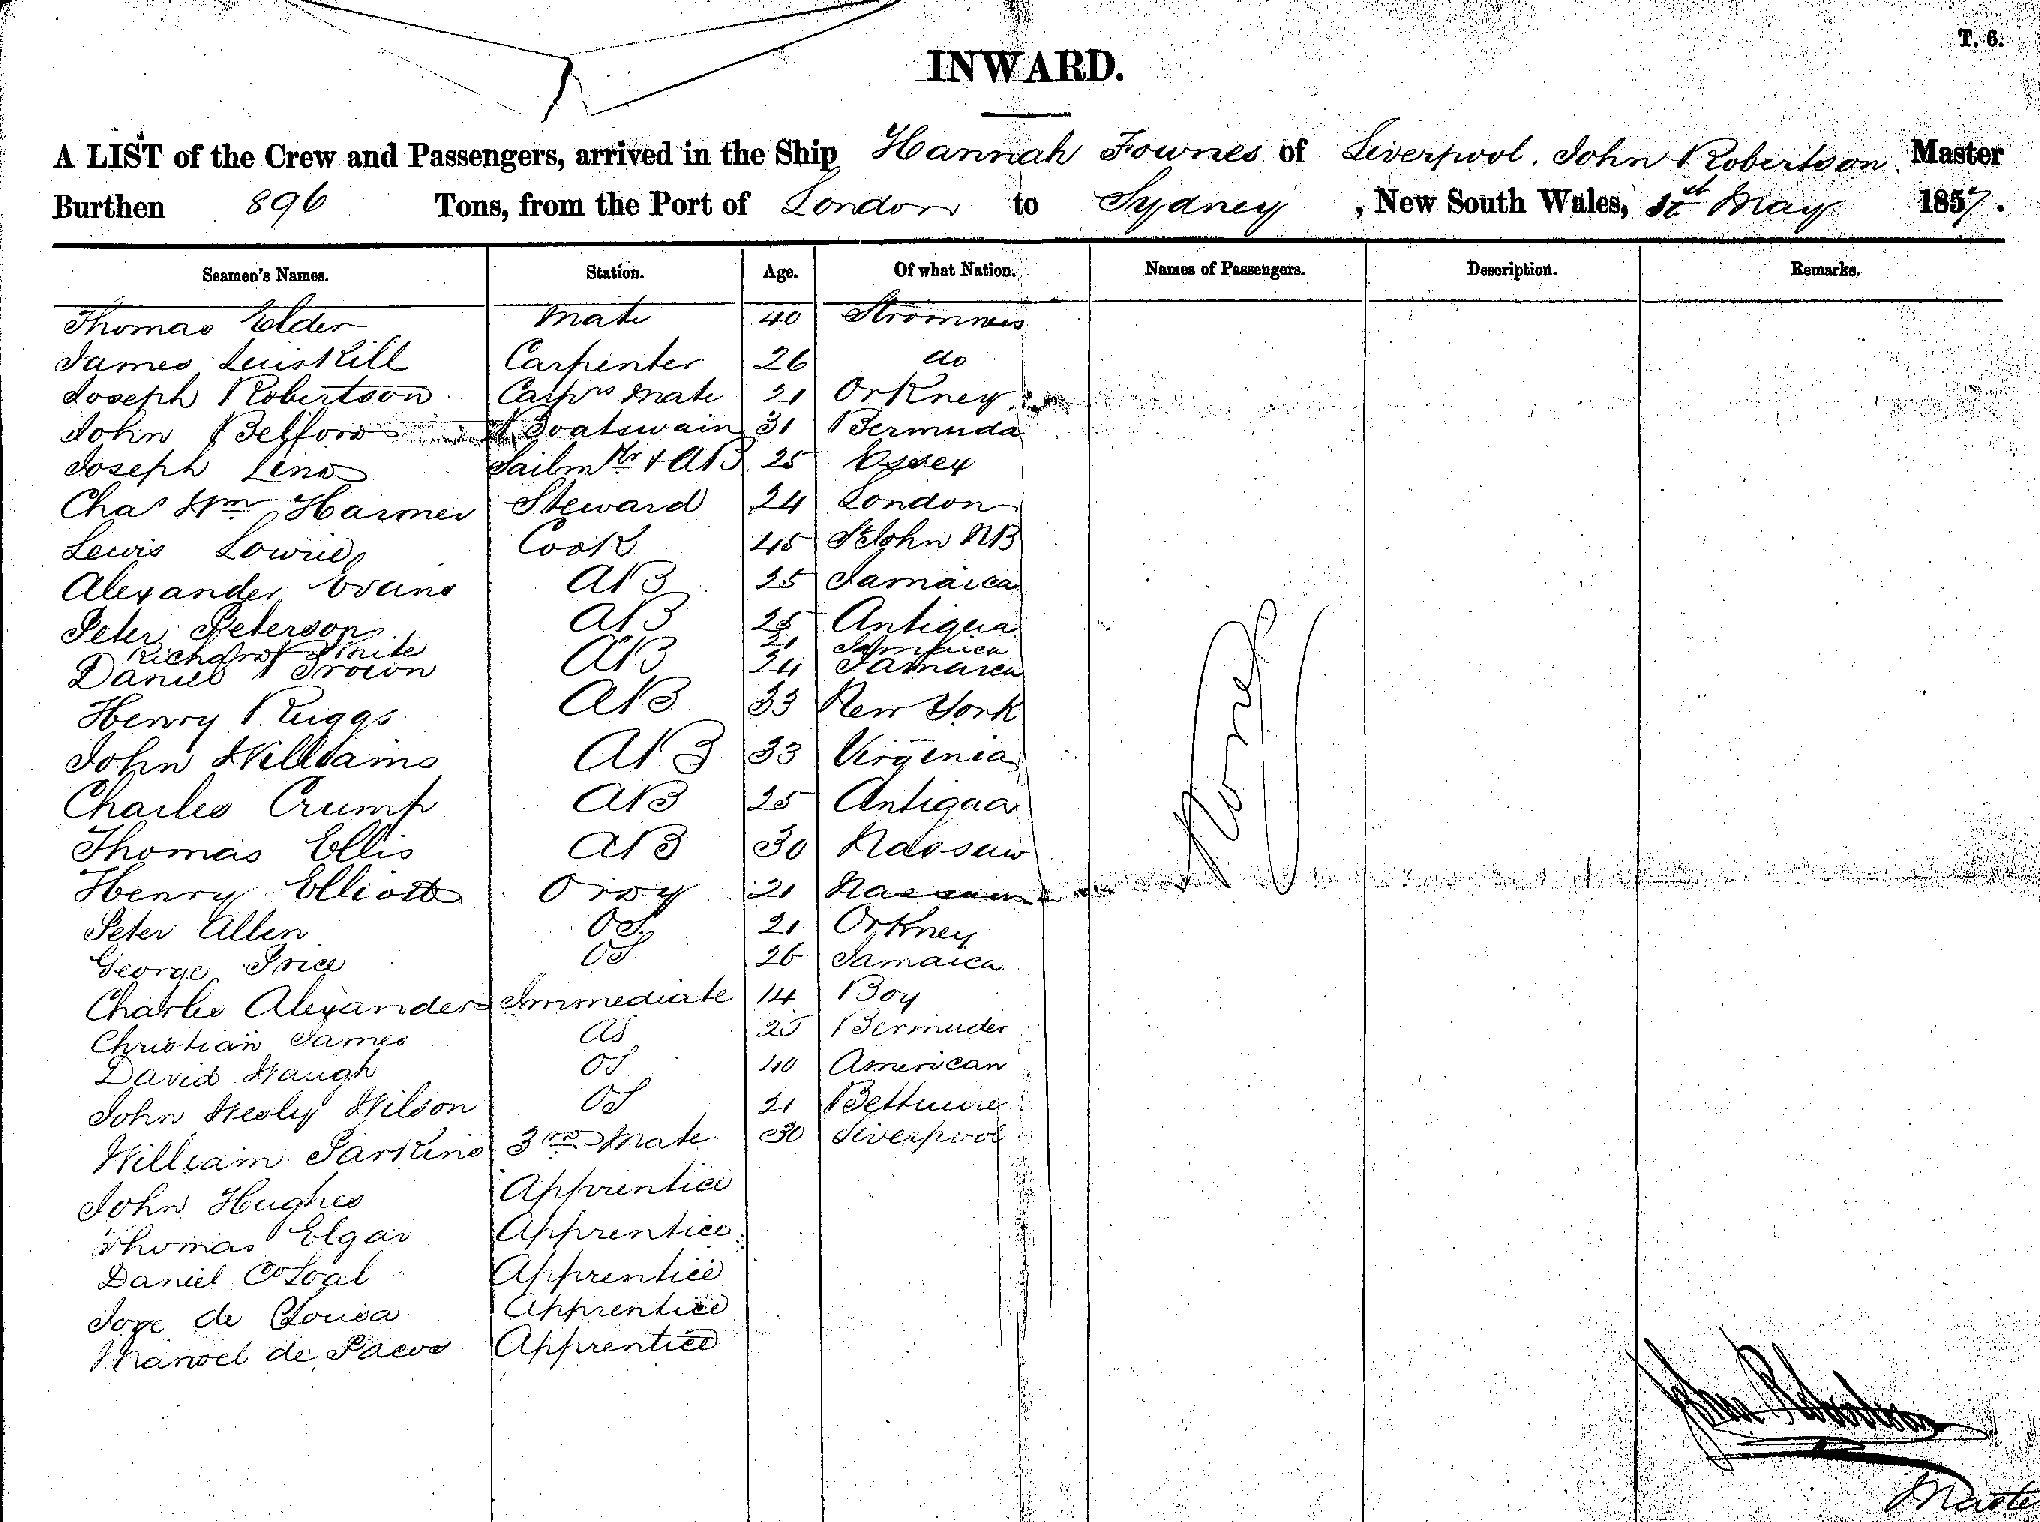 T. 6.
INWARD.
A LIST of the Crew and Passengers, arrived in the Ship Hannah Fownes of Liverpool. John Robertson Master
Burthen 896 Tons, from the Port of London to Sydney, New South Wales, May 1857.
Seamen's Names. Station. Age. Of what Nation. Names of Passengers. Description. Remarks.
Thomas Elder Mate 40 Stromness
James Carpenter 26 do
Joseph Robertson Carprs Mate 21 Orkney
John Belford Boatswain 31 Bermuda
Joseph Sailmkr + AB 25 Essex
Chas Wm Harmer Steward 24 London
Lewis Lowrie Cook 45 St John NB
Alexander Evans AB 25 Jamaica
Peter Peterson AB 25 Antigua
Richard White 21 Jamaica
Daniel Brown AB 24 Jamaica
Henry Riggs AB 33 New York
John Williams AB 33 Virginia
Charles Crump AB 25 Antigua
Thomas Ellis AB 30 Nassau
Henry Elliott Ordy 21 Nassau
Peter Allen OS 21 Orkney
George Price OS 26 Jamaica
Charles Alexander Immediate 14 Boy
Christian James 25 Bermuder
David Waugh OS 40 American
John Wesley Wilson OS 21
William Parkins 3rd Mate 30 Liverpool
John Hughes Apprentice
Thomas Elgar Apprentice
Daniel Apprentice
Jose de Souisa Apprentice
Manoel de Apprentice
None
John Robertson
Master